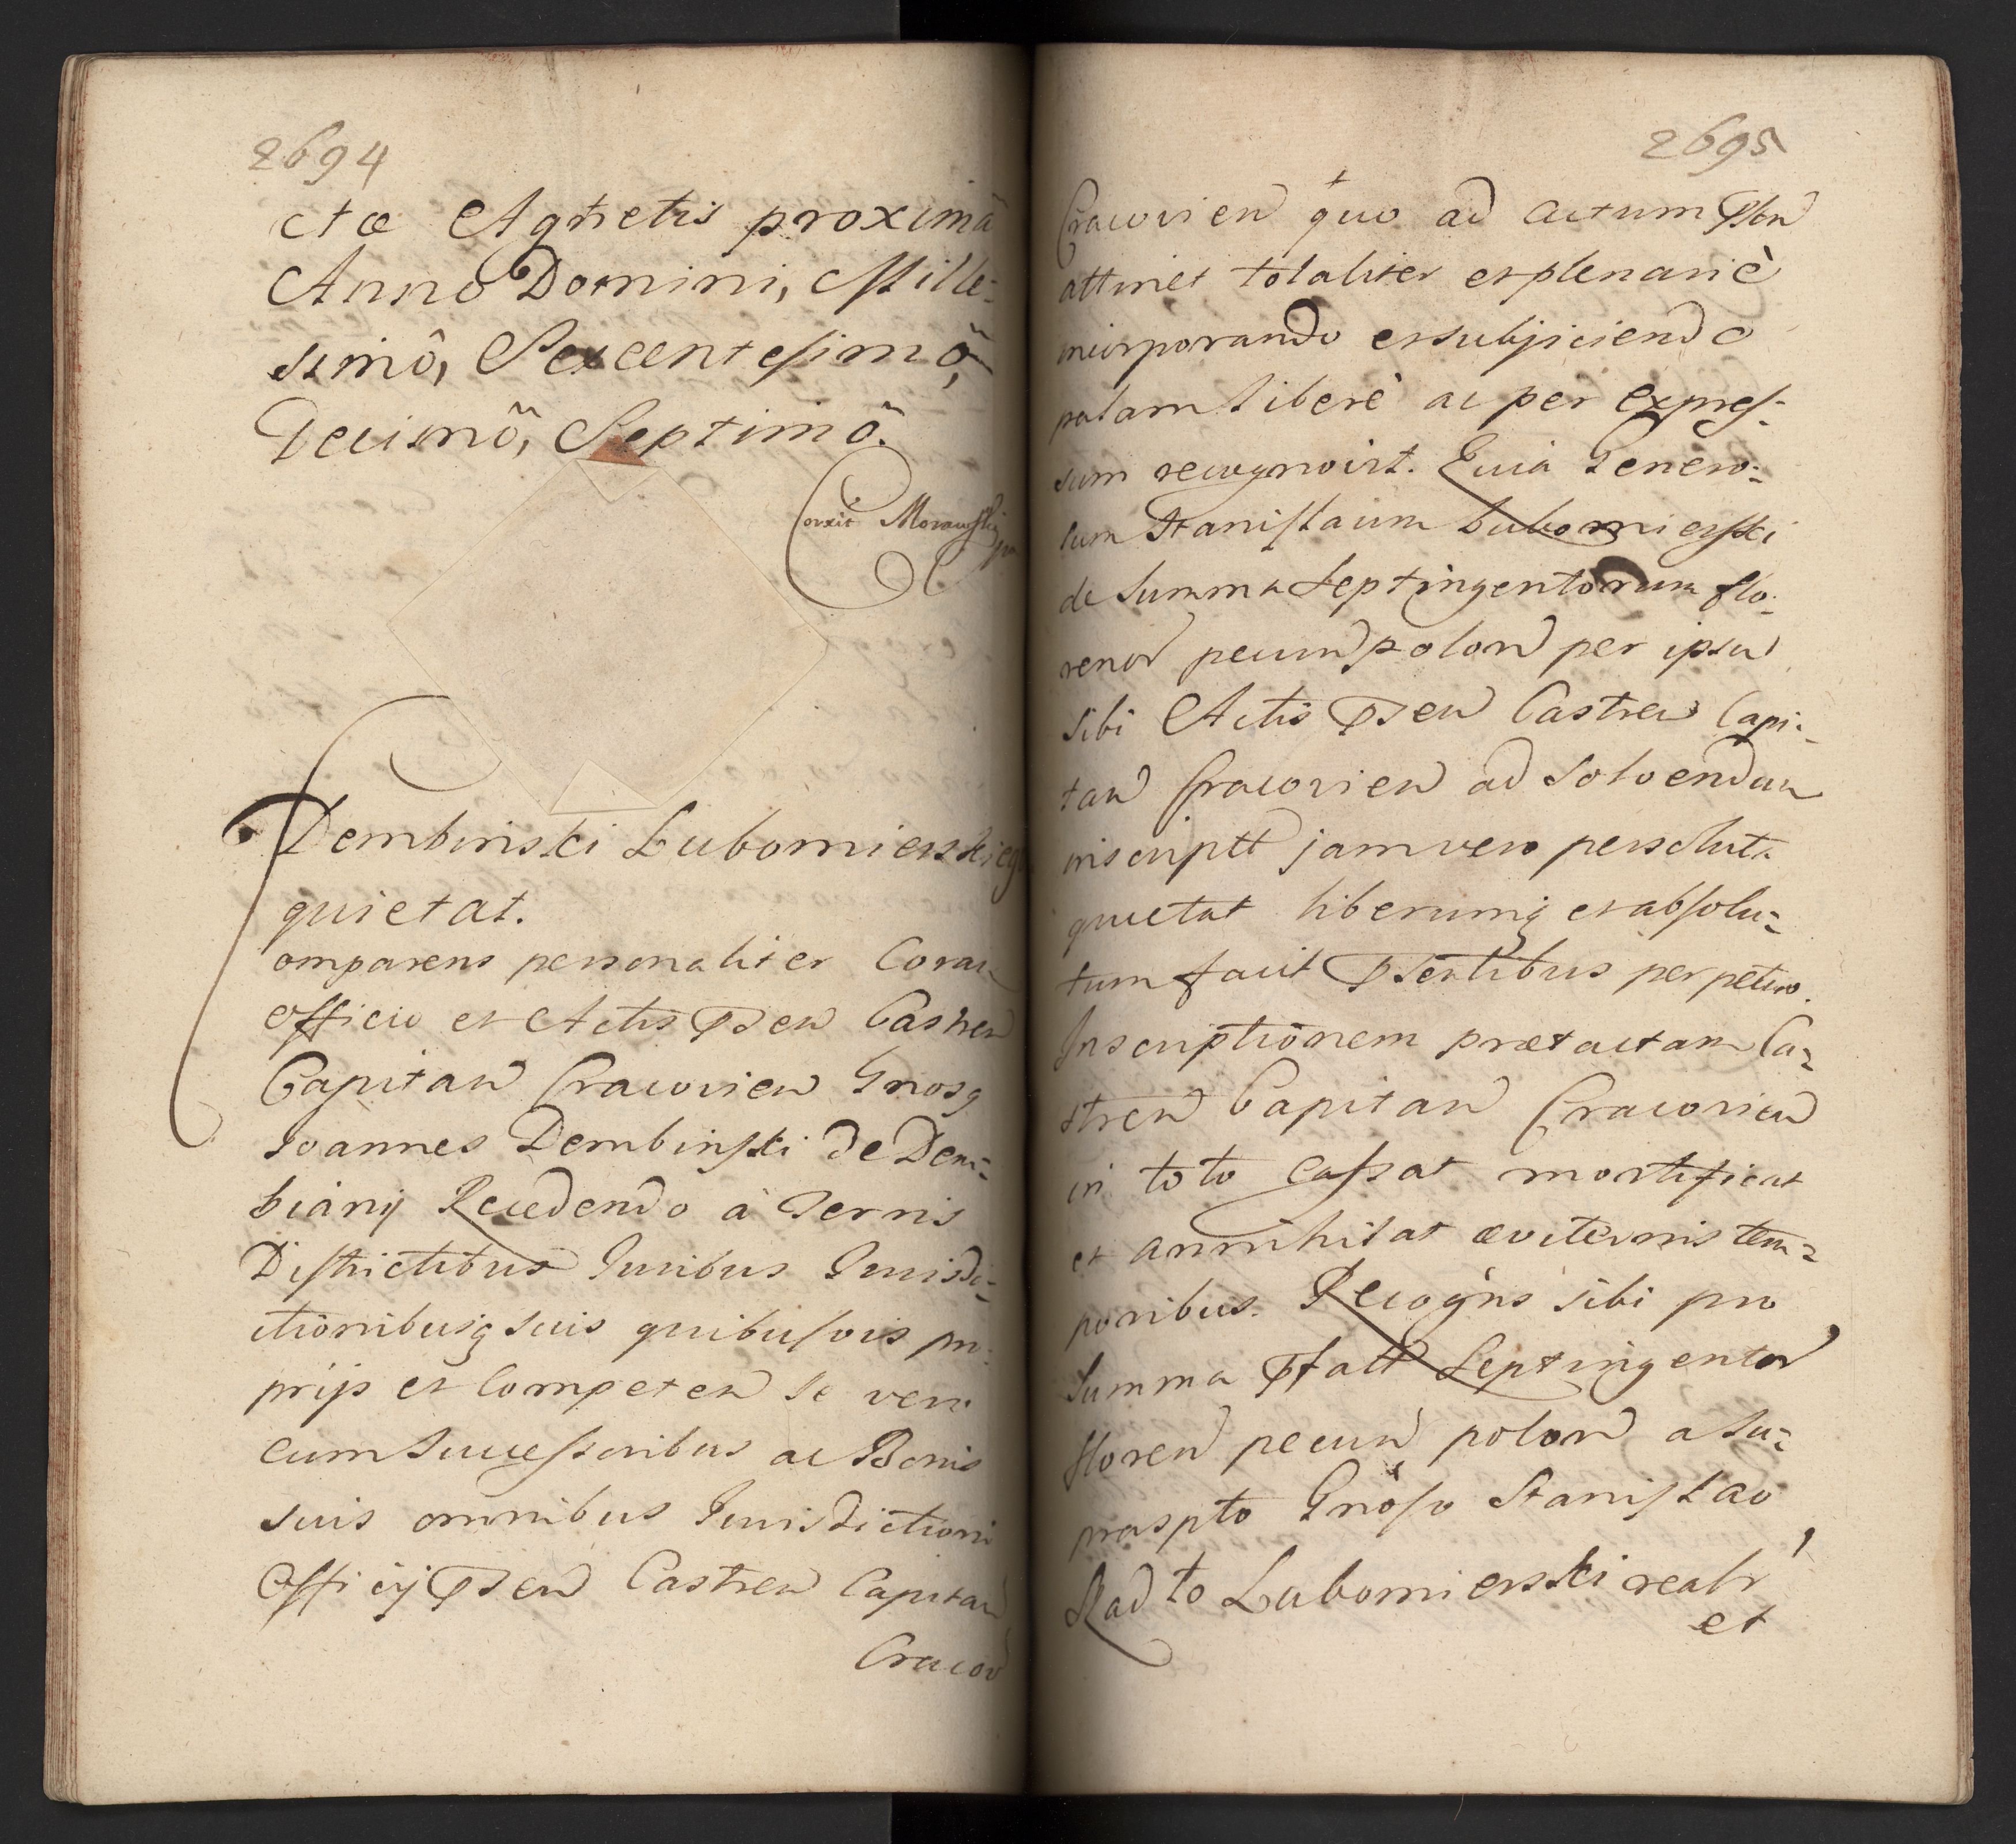 2694
ctæ Agnetis proximâ
Anno Domini, Mille-
simô, Sexcentesimô,
Decimô, Septimô.
Correxit Morawski
Dembinski Lubomierskiego
quietat.
omparens personaliter Coram
officio et Actis Psen Castren
Capitan Cracovien Gnosq
Joannes Dembinski de Dem-
biany Recedendo à Terris
Districtibus Iuribus Iurisdi-
ctionibusq suis quibusvis pro-
prijs et Competen se vero
cum Successoribus ac Bonis
suis omnibus Iurisdictioni
Officij Psen Castren Capitan
Cracov
2695
Cracovien quo ad actum Psen
attinet totaliter et plenariè
incorporando et subjiciendo
palam liberè ac per expres-
sum recognovit. Quia Genero-
sum Stanislaum Lubomierski
de Summa Septingentorum flo-
renor pecun polon per ipsu
sibi Actis Psen Castren Capi-
tan Cracovien ad solvendum
inscriptt jam vero persoluta
quietat liberumq et absolu-
tum facit Psentibus perpetuo.
Inscriptionem prætactam Ca-
stren Capitan Cracovien
in toto cassat mortificat
et annihilat æviternis tem-
poribus. Recogns sibi pro
Summa Pfatt Septingentor
floren pecun polon a su-
praspto Gnoso Stanislao
Lubomierski realr
et